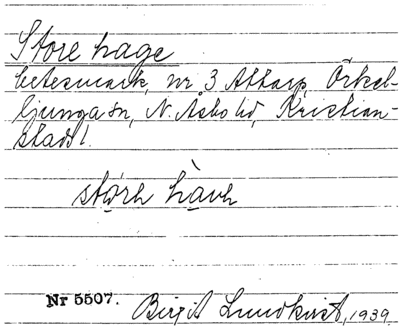 Store hage
betesmark, nr 3 Attarp, Örkel-
ljunga sn, N. Åsbo hd, Kristian-
stads l.
støre have
Nr 5507.
Birgit Lundkvist, 1939